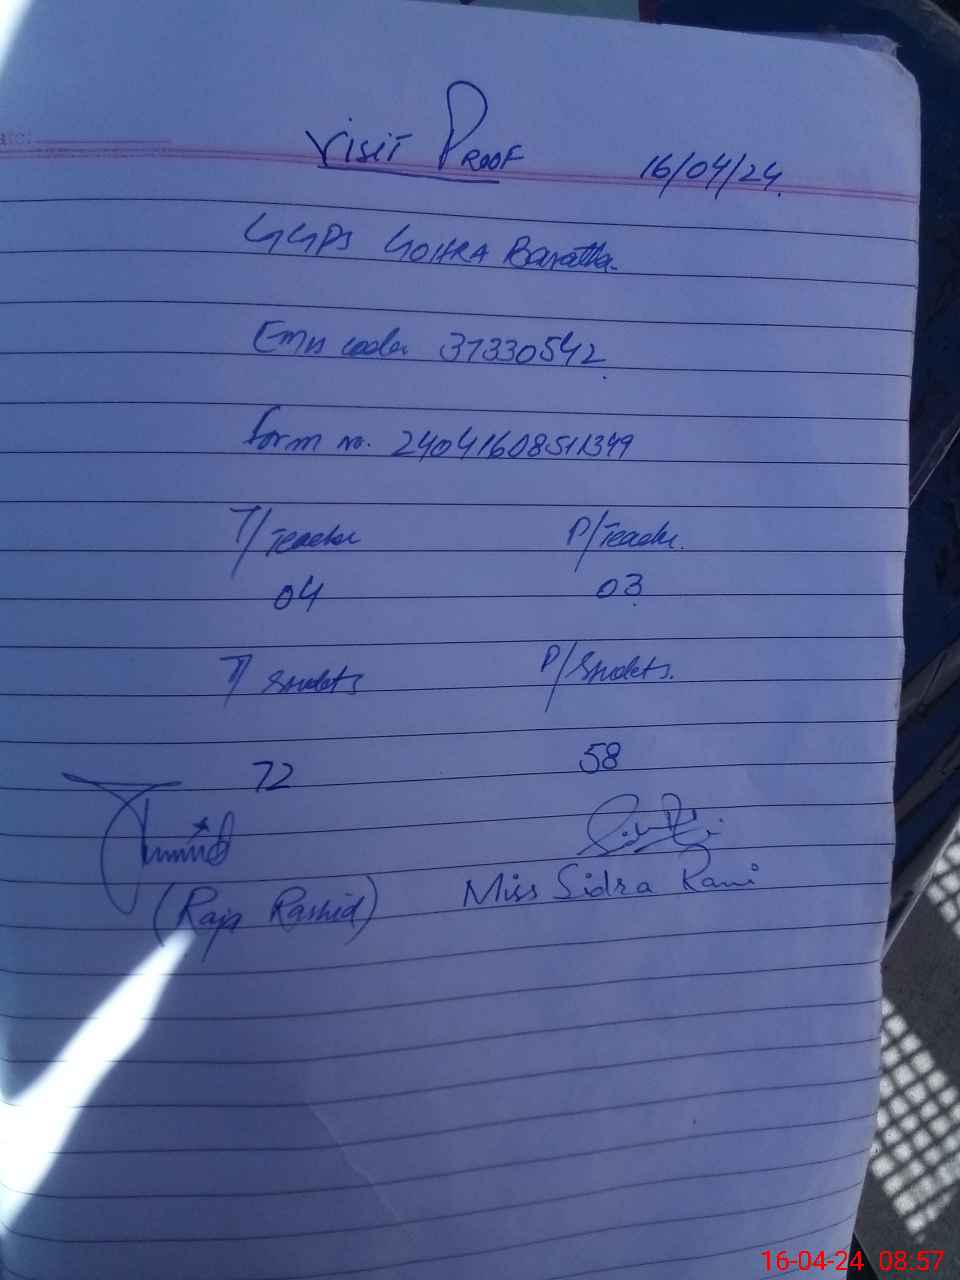 Visit Proof 16/04/24.
GGPS GOHRA Baratta.
Emis code 37330542
form no. 24041608511349
T/Teacher P/Teacher.
04 03
T/Students P/Students.
72 58
(Raja Rashid) Miss Sidra Rani
16-04-24 08:57